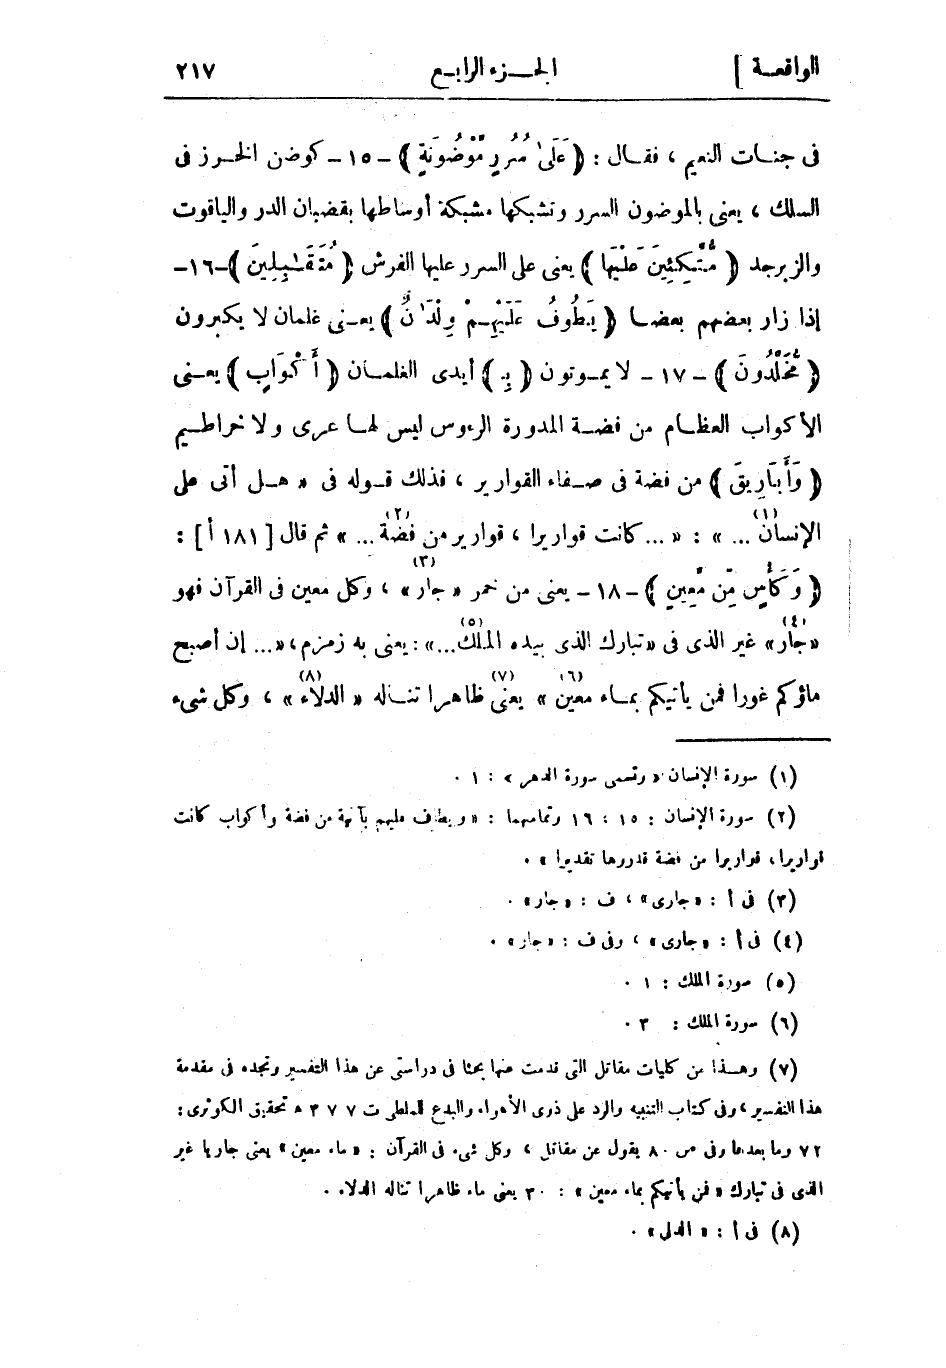 الواقعة ] الجزء الرابع ٢١٧
فى جنات النعيم ، فقال : ﴿ عَلَىٰ سُرُرٍ مَّوْضُونَةٍ ﴾ - ١٥ - كوضن الخرز فى
السلك ، يعنى بالموضون السرر وتشبكها مشبكة أوساطها بقضبان الدر والياقوت
والزبرجد ﴿ مُّتَّكِئِينَ عَلَيْهَا ﴾ يعنى على السرر عليها الفرش ﴿ مُتَقَـٰبِلِينَ ﴾ - ١٦ -
إذا زار بعضهم بعضا ﴿ يَطُوفُ عَلَيْهِمْ وِلْدَٰنٌ ﴾ يعنى غلمان لا يكبرون
﴿ مُّخَلَّدُونَ ﴾ - ١٧ - لا يموتون ﴿ بِـ ﴾ أيدى الغلمان ﴿ أَكْوَابٍ ﴾ يعنى
الأكواب العظام من فضة المدورة الرءوس ليس لها عرى ولا خراطيم
﴿ وَأَبَارِيقَ ﴾ من فضة فى صفاء القوارير ، فذلك قوله فى « هل أتى على
الإنسان (١) ... » : « ... كانت قواريرا ، قوارير من فضة (٢) ... » ثم قال [ ١٨١ أ ] :
﴿ وَكَأْسٍ مِّن مَّعِينٍ ﴾ - ١٨ - يعنى من خمر « جار (٣) » ، وكل معين فى القرآن فهو
« جار (٤) » غير الذى فى « تبارك الذى بيده الملك (٥) ... » : يعنى به زمزم ، « ... إن أصبح
ماؤكم غورا فمن يأتيكم بماء معين (٦) » يعنى (٧) ظاهرا تناله « الدلاء (٨) » ، وكل شىء
(١) سورة الإنسان « وتسمى سورة الدهر » : ١ .
(٢) سورة الإنسان : ١٥ ، ١٦ وتمامهما : « ويطاف عليهم بآنية من فضة وأكواب كانت
قواريرا ، قواريرا من فضة قدروها تقديرا » .
(٣) فى أ : « جارى » ، ف : « جار » .
(٤) فى أ : « جارى » ، وفى ف : « جار » .
(٥) سورة الملك : ١ .
(٦) سورة الملك : ٣٠ .
(٧) وهذا من كليات مقاتل التى قدمت عنها بحثا فى دراستى عن هذا التفسير وتجده فى مقدمة
هذا التفسير ، وفى كتاب التنبيه والرد على ذوى الأهواء والبدع للملطى ت ٣٧٧ ه تحقيق الكوثرى :
٧٢ وما بعدها وفى ص ٨٠ يقول عن مقاتل ، وكل شىء فى القرآن : « ماء معين » يعنى جاريا غير
الذى فى تبارك « فمن يأتيكم بماء معين » : ٣٠ يعنى ماء ظاهرا تناله الدلاء .
(٨) فى أ : « الدلى » .